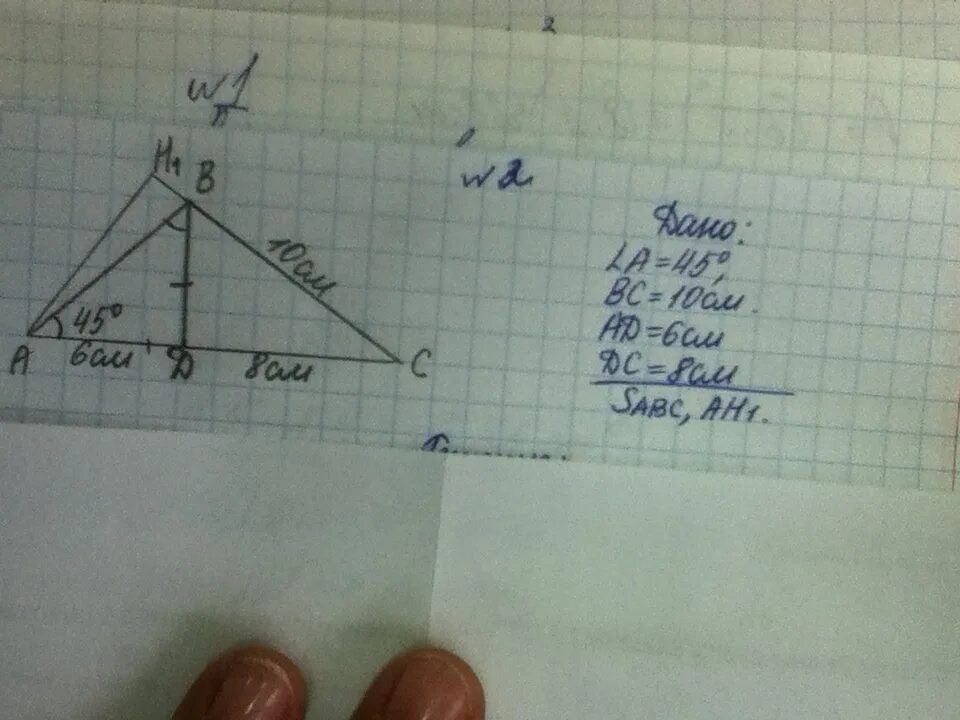 2
№1
№2
H1
B
10см
45°
A
6см
D
8см
C
Дано:
∠A=45°,
BC=10см.
AD=6см
DC=8см
SABC, AH1.